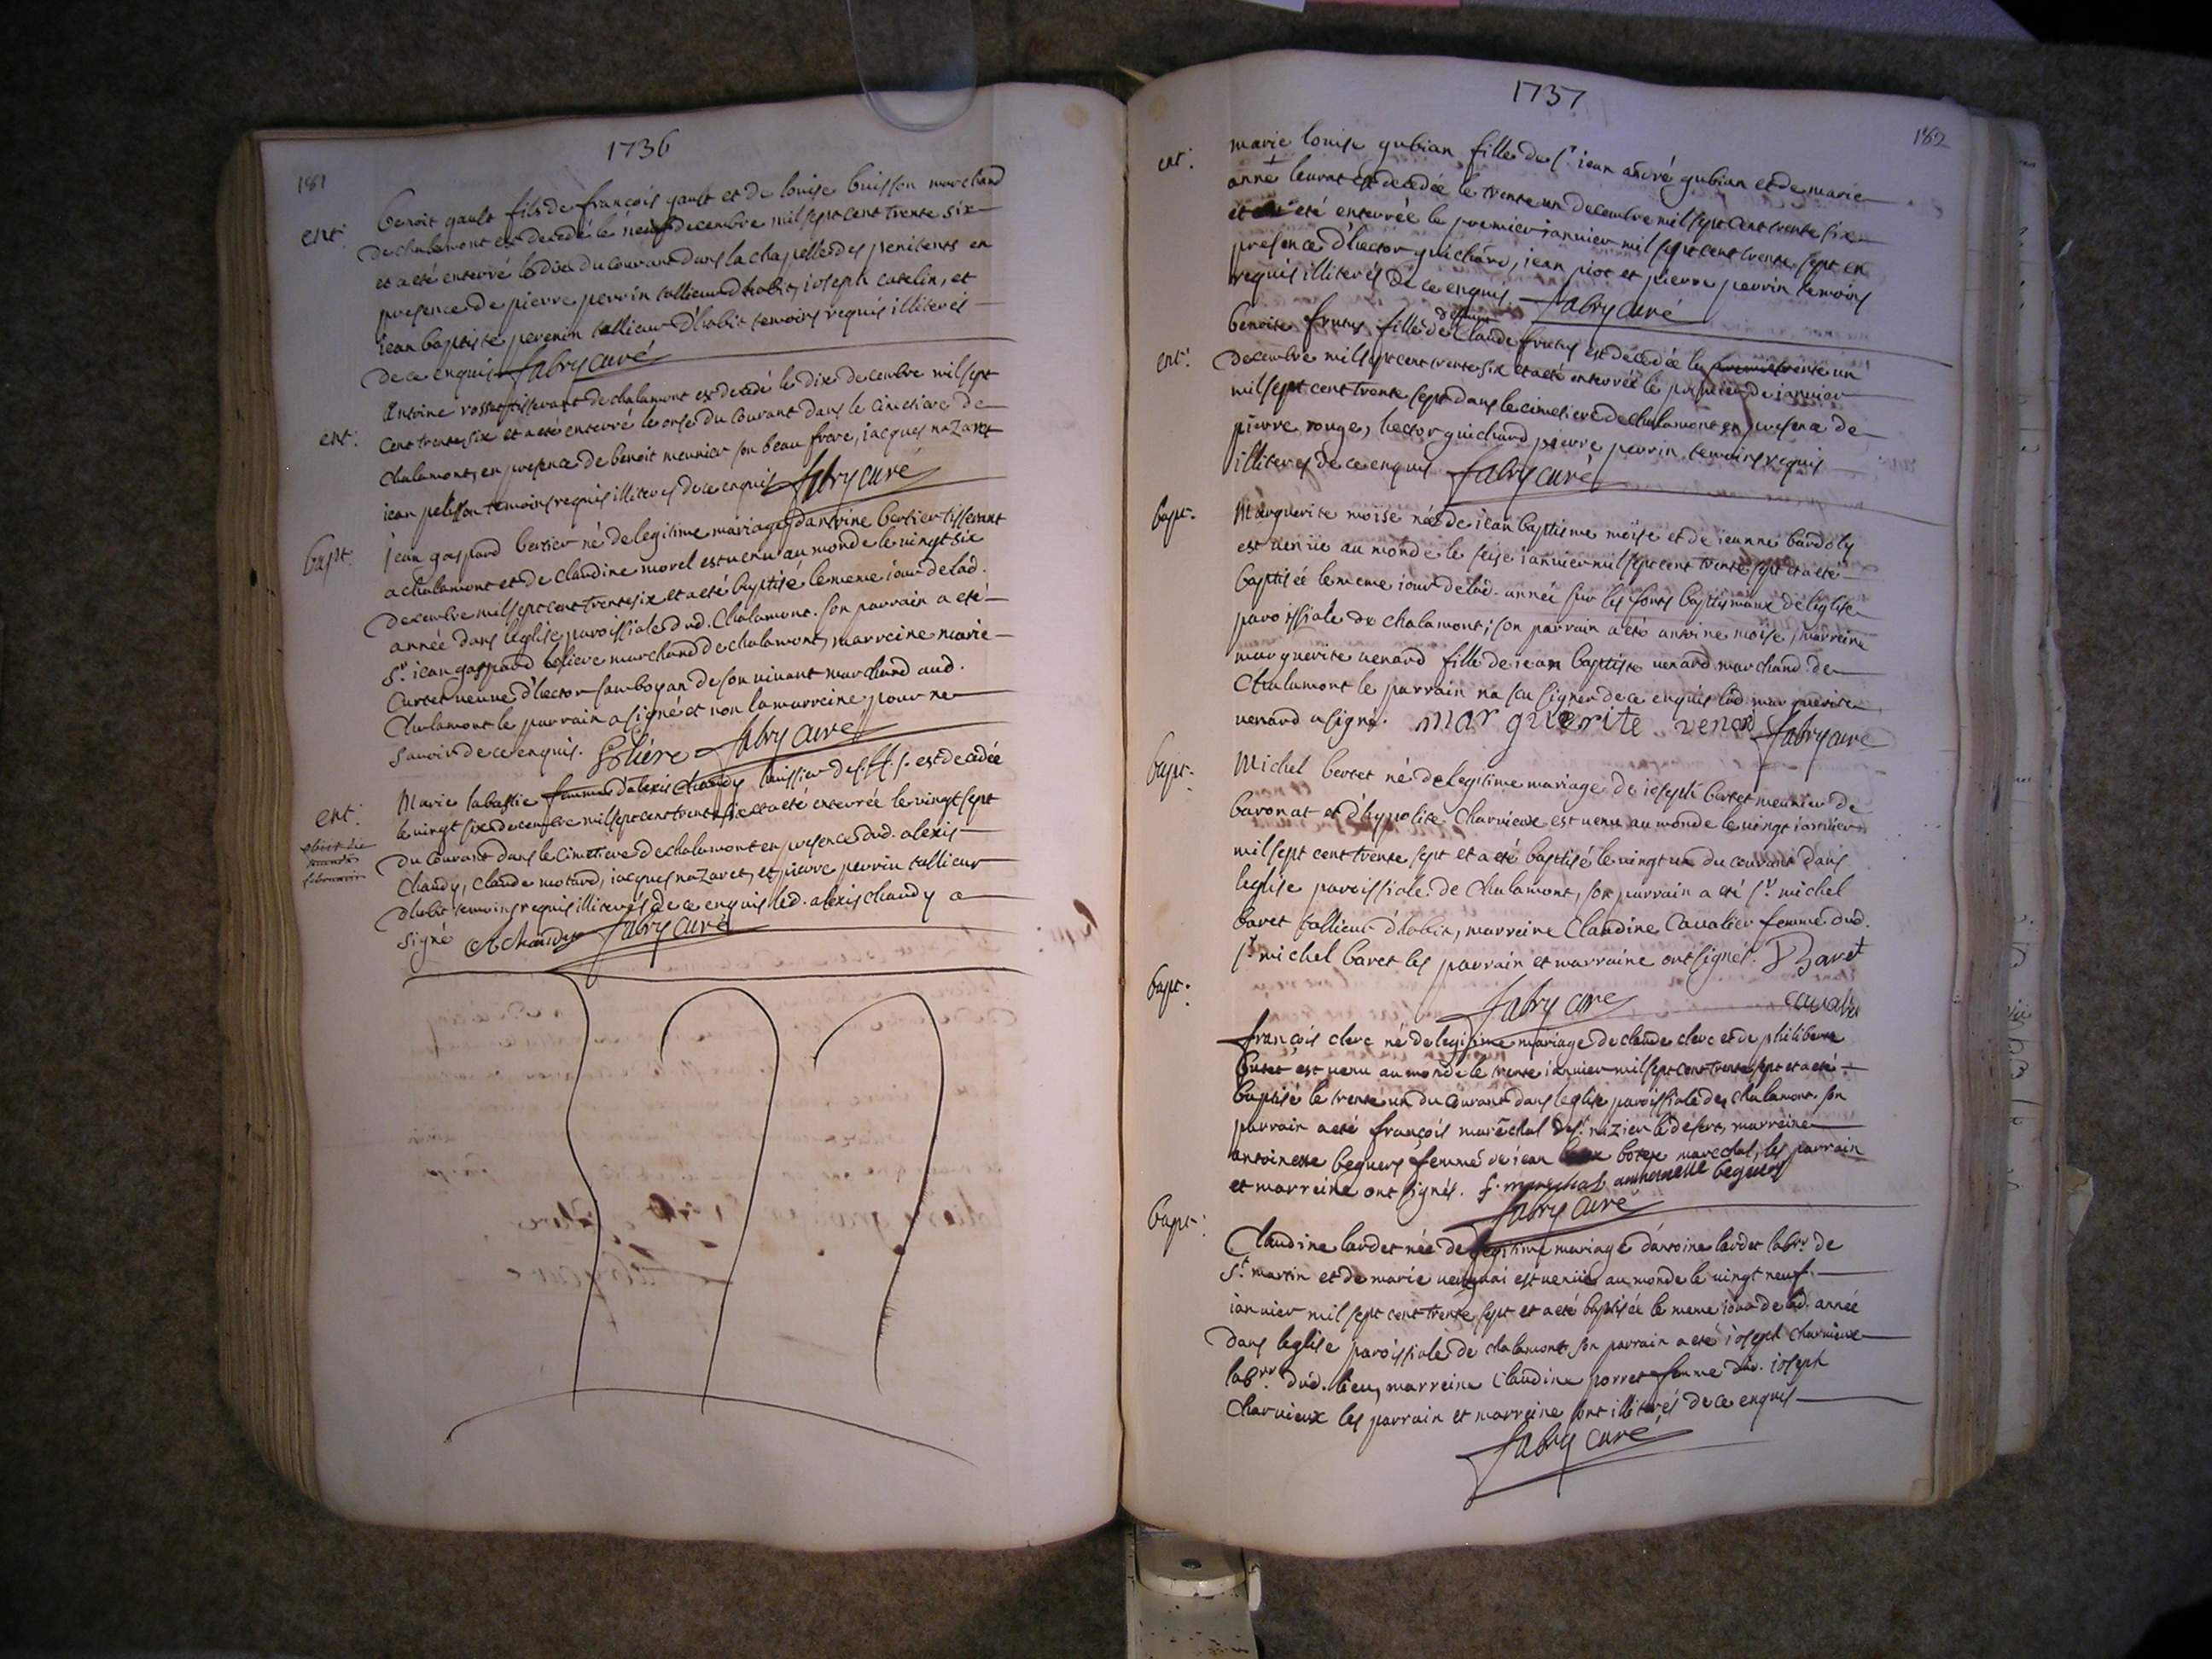 1736
181
ent: benoit gault fils de françois gault et de louise buisson marchand
de chalamont est decedé le neuf decembre mil sept cent trente six
et a eté enterré le dix du courant dans la chapelle des penitents en
presence de pierre perrin tallieur d'habit, ioseph catelin, et
iean baptiste tallieur d'habit temoins requis illiterés
de ce enquis fabry curé
ent: antoine tisserant de chalamont est decedé le dix decembre mil sept
cent trente six et a eté enterré le onse du courant dans le cimetiere de
chalamont, en presence de benoit meunier son beau frere, iacques nazaret
iean pelisson temoins requis illiterés de ce enquis fabry curé
bapt: iean gaspard bertier né de legitime mariage d'antoine bertier tisserant
a chalamont et de claudine morel est venu au monde le vingt six
decembre mil sept cent trente six et a eté baptisé le meme iour de lad.
année dans l'eglise paroissiale dud. chalamont. son parrain a eté
sr. iean gaspard marchand de chalamont, marreine marie
curtet veuve d'hector de son vivant marchand aud.
chalamont le parrain a signé et non la marreine pour ne
savoir de ce enquis. fabry curé
ent: Marie labastie femme d'alexis chaudy huissier de est decedée
le vingt six decembre mil sept cent trente six et a eté enterrée le vingt sept
du courant dans le cimetiere de chalamont en presence dud. alexis
chaudy, claude motard, iacques nazaret, et pierre perrin tallieur
d'habit temoins requis illiterés de ce enquis led. alexis chaudy a
signé A chaudy fabry curé
1737
182
ent: marie louise gubian fille de sr iean andré gubian et de marie
anne leurat est decedée le trente un decembre mil sept cent trente six
et eté enterrée le premier ianvier mil sept cent trente sept en
presence d'hector guichard, iean piot et pierre perrin temoins
requis illiterés de ce enquis fabry curé
benoite frutus fille de deffunt claude frutus est decedée le trente un
ent: decembre mil sept cent trente six et a eté enterrée le premier de ianvier
mil sept cent trente sept dans le cimetiere de chalamont en presence de
pierre rouge, hector guichard pierre perrin temoins requis
illiterés de ce enquis fabry curé
bapt: Marguerite moïse née de iean baptisme moïse et de ieanne bardoly
est venüe au monde le seise ianvier mil sept cent trente sept et a eté
baptisée le meme iour de lad. année sur les fonts baptismaux de l'eglise
paroissiale de chalamont; son parrain a eté antoine moïse, marreine
marguerite venard fille de iean baptiste venard marchand de
chalamont le parrain na scu signer de ce enquis lad marguerite
venard a signé. mar guerite venard fabry curé
bapt: Michel bertet né de legitime mariage de ioseph bertet meunier de
baronat et d'hypolite charvieux est venu au monde le vingt ianvier
mil sept cent trente sept et a eté baptisé le vingt un du courant dans
leglise paroissiale de chalamont, son parrain a eté sr. michel
baret tallieur d'habit, marreine claudine cavalier femme dud.
sr michel baret les parrain et marraine ont signés. Baret
bapt: fabry curé cavalier
françois clerc né de legitime mariage de claude clerc et de philiberte
est venu au monde le trente ianvier mil sept cent trente sept et a eté
baptisé le trente un du courant dans leglise paroissiale de chalamont. son
parrain a eté françois maréchal de st. nizier le desert, marreine
antoinette beguers femme de iean marechal, les parrain
et marreine ont signés. f. mareschal anthoinette beguers
fabry curé
bapt: Claudine lardet née de legitime mariage d'antoine lardet labr. de
st. martin et de marie est venüe au monde le vingt neuf
ianvier mil sept cent trente sept et a eté baptisée le meme iour de lad. année
dans leglise paroissiale de chalamont son parrain a eté ioseph charvieux
labr. dud. lieu, marreine claudine porret femme dud. ioseph
charvieux les parrain et marreine sont illiterés de ce enquis
fabry curé